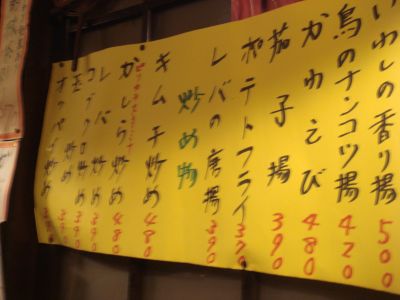 いわしの香り揚 500
鳥のナンコツ揚 420
かわえび 480
茄子揚 390
ポテトフライ 370
レバの唐揚 390
炒め物
キムチ炒め 480
かしら炒め 480
レバー炒め 390
コブクロ炒め 390
玉 炒め 390
オッパイ炒め 390